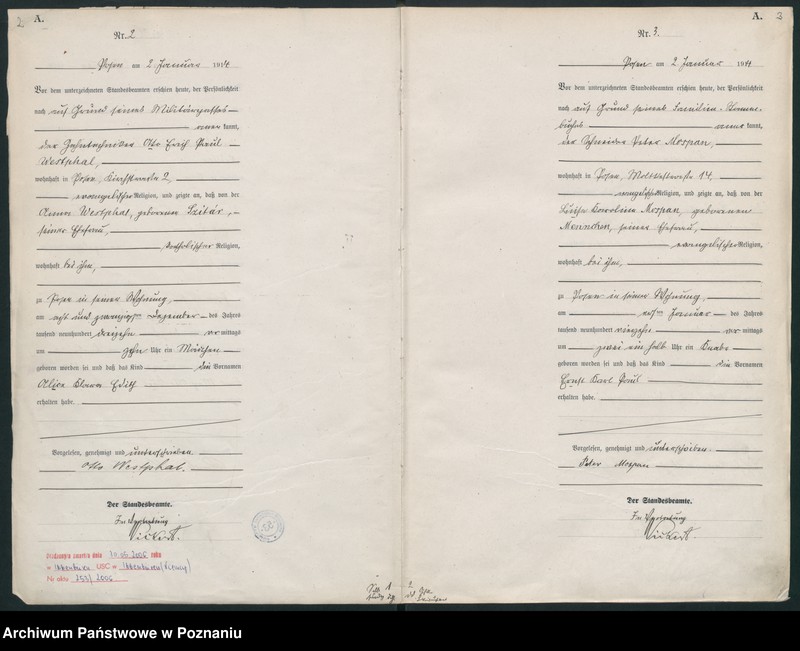 2
A.
Nr. 2
Posen am 2 Januar 1914
Vor dem unterzeichneten Standesbeamten erschien heute, der Persönlichkeit
nach auf Grund seines Militärpasses
kannt,
der Zahntechniker Otto Erich Paul
Westphal,
wohnhaft in Posen, Kirchstraße 2
evangelischer Religion, und zeigte an, daß von der
Anna Westphal, geborenen
seiner Ehefrau,
katholischer Religion,
wohnhaft bei ihm,
zu Posen in seiner Wohnung,
am acht und zwanzigsten Dezember des Jahres
tausend neunhundert dreizehn vormittags
um zehn Uhr ein Mädchen
geboren worden sei und daß das Kind die Vornamen
Alice Klara Edith
erhalten habe.
Vorgelesen, genehmigt und unterschrieben.
Otto Westphal.
Der Standesbeamte.
In Vertretung
A. 3
Nr. 3.
Posen am 2 Januar 1914
Vor dem unterzeichneten Standesbeamten erschien heute, der Persönlichkeit
nach auf Grund seines Familien-Stamm-
buchs
kannt,
der Schneider Peter Mospan,
wohnhaft in Posen, Moltkestraße 14,
evangelischer Religion, und zeigte an, daß von der
Luise Karoline Mospan, geborenen
seiner Ehefrau,
evangelischer Religion,
wohnhaft bei ihm,
zu Posen in seiner Wohnung,
am Januar des Jahres
tausend neunhundert vierzehn vormittags
um zwei ein halb Uhr ein Knabe
geboren worden sei und daß das Kind die Vornamen
Ernst Karl Paul
erhalten habe.
Vorgelesen, genehmigt und unterschrieben.
Peter Mospan
Der Standesbeamte.
In Vertretung
Nr aktu 253/2006
Archiwum Państwowe w Poznaniu